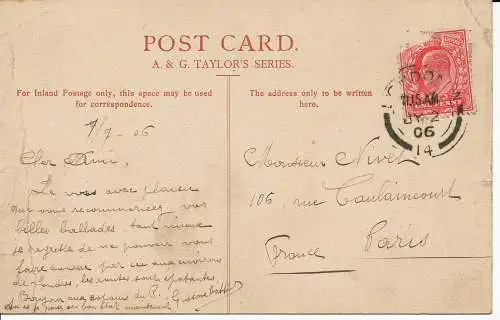 POST CARD.
A. & G. TAYLOR'S SERIES.
For Inland Postage only, this space may be used
for correspondence.
The address only to be written
here.
LONDON
7.15AM
JY 2
06
14
06
Cher Ami,
Je vois avec plaisir
que vous recommencez vos
belles ballades tant mieux
je regrette de ne pouvoir vous
faire par ici aux environs
de Londres, les routes sont épatantes
Bonjour aux copains du P.
Monsieur Nivet
106, rue Caulaincourt
Paris
France